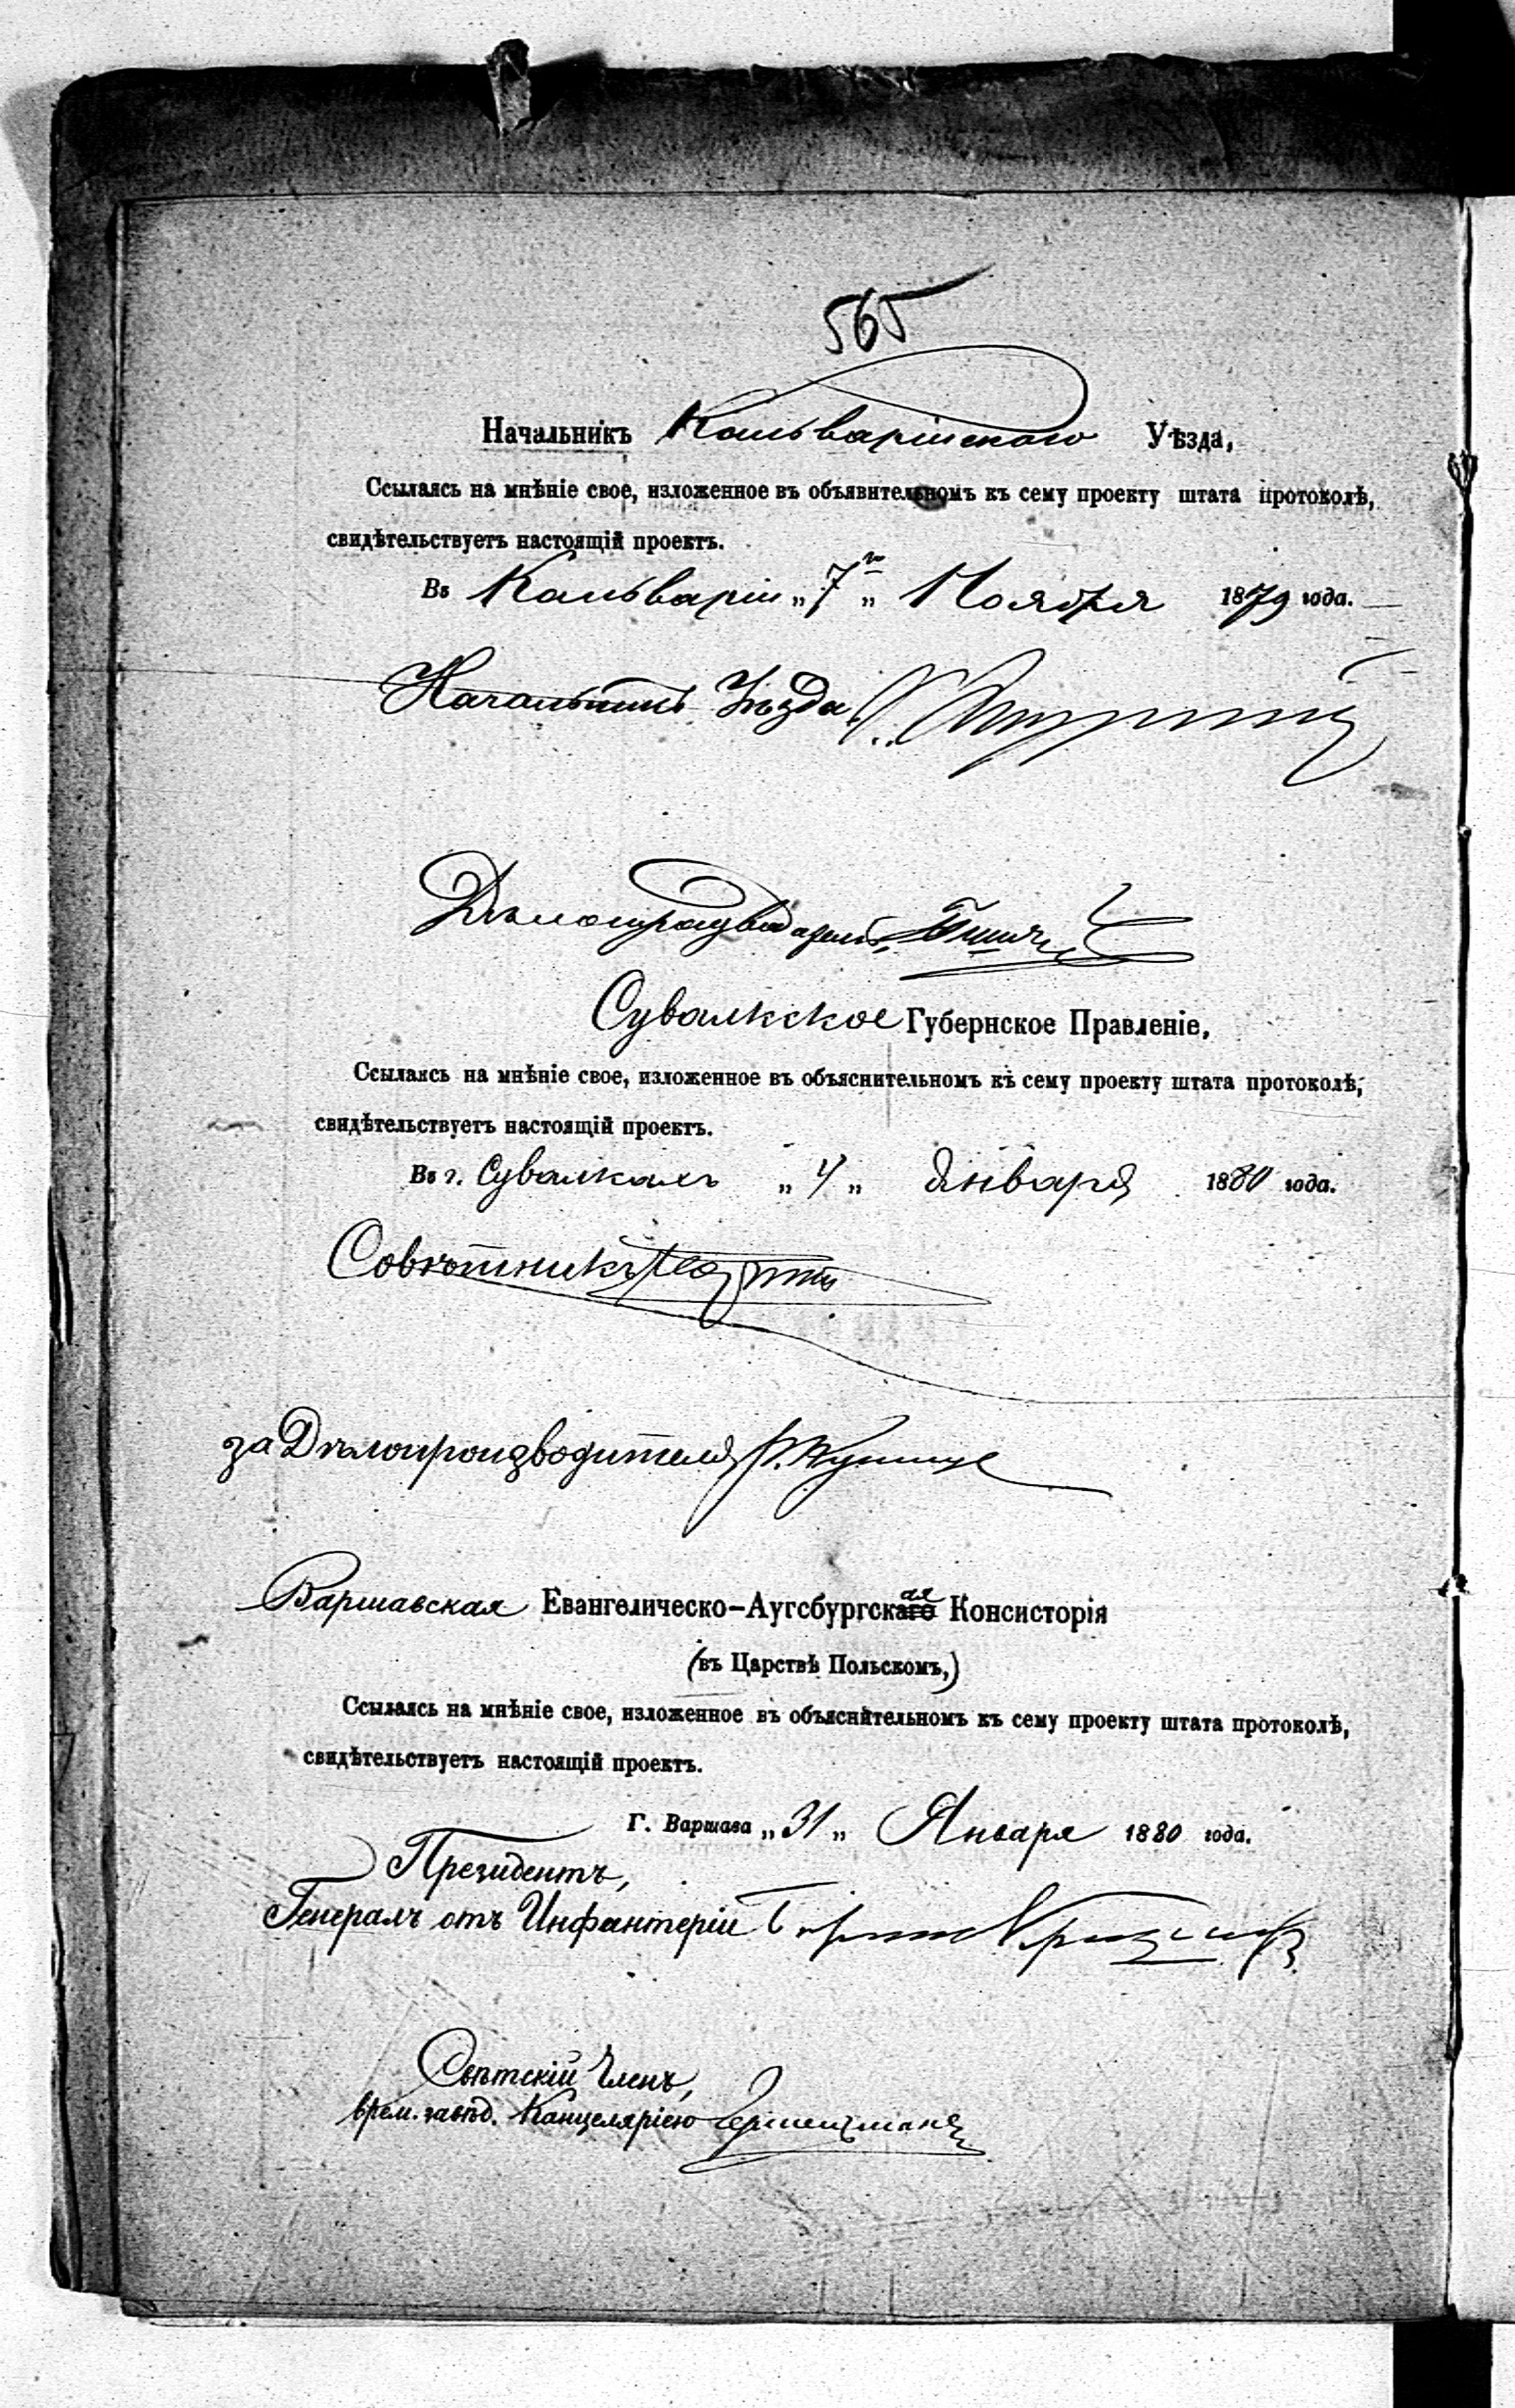 565
Начальникъ Кальварійскаго Уѣзда,
Ссылаясь на мнѣніе свое, изложенное въ объявительномъ къ сему проекту штата протоколѣ,
свидѣтельствуетъ настоящій проектъ.
Въ Кальваріи „7го„ Ноября 1879 года.
Начальникъ Уѣзда
Дѣлопроизводитель
Сувалкское Губернское Правленіе,
Ссылаясь на мнѣніе свое, изложенное въ объяснительномъ къ сему проекту штата протоколѣ,
свидѣтельствуетъ настоящій проектъ.
Въ г. Сувалкахъ „4„ Января 1880 года.
Совѣтникъ
за Дѣлопроизводителя
Варшавская Евангелическо-Аугсбургская Консисторія
(въ Царствѣ Польскомъ,)
Ссылаясь на мнѣніе свое, изложенное въ объяснительномъ къ сему проекту штата протоколѣ,
свидѣтельствуетъ настоящій проектъ.
Г. Варшава „31„ Января 1880 года.
Президентъ,
Генералъ отъ Инфантеріи
Свѣтскій Членъ,
врем. завѣд. Канцеляріею